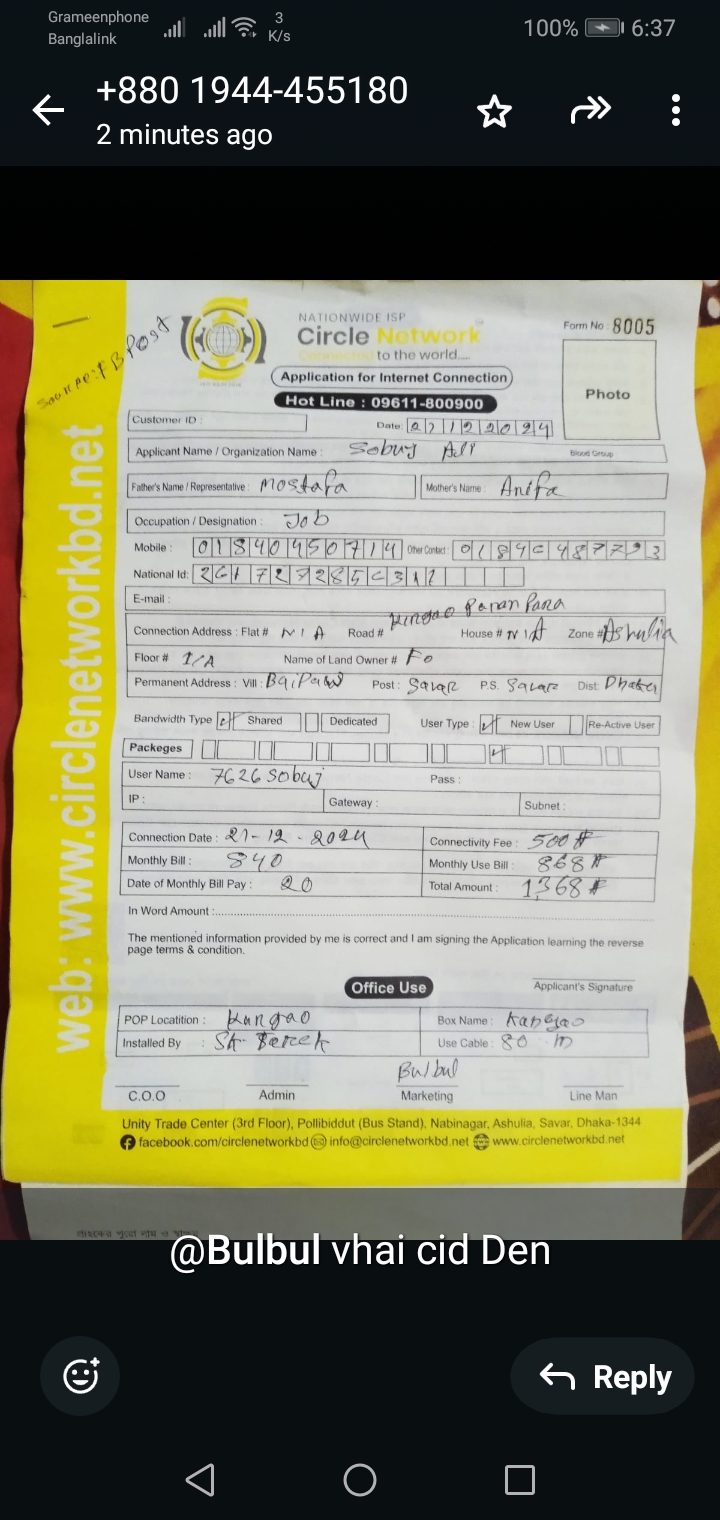 Grameenphone
Banglalink
3
K/s
100% 6:37
+880 1944-455180
2 minutes ago
Source: FB Post
NATIONWIDE ISP
Circle Network
Connected to the world....
Form No : 8005
Application for Internet Connection
Photo
Hot Line : 09611-800900
Customer ID :
Date: 21122024
Applicant Name / Organization Name : Sobuj Ali
Blood Group
Father's Name / Representative : Mostafa Mother's Name : Anifa
Occupation / Designation : Job
Mobile : 01840450714 Other Contact :
National Id:
E-mail :
Connection Address : Flat # N/A Road # Para House # N/A Zone # Ashulia
Floor # Name of Land Owner #
Permanent Address : Vill : Post : Savar P.S. Savar Dist: Dhaka
Bandwidth Type Shared Dedicated User Type : New User Re-Active User
Packeges
User Name : 7626 Sobuj Pass :
IP : Gateway : Subnet :
Connection Date : 21-12-2024 Connectivity Fee : 500
Monthly Bill : 840 Monthly Use Bill : 868
Date of Monthly Bill Pay : 20 Total Amount : 1368
In Word Amount :
The mentioned information provided by me is correct and I am signing the Application learning the reverse
page terms & condition.
Office Use
Applicant's Signature
POP Locatition : Kungao Box Name :
Installed By : SK Use Cable : 80 m
Bulbul
C.O.O Admin Marketing Line Man
Unity Trade Center (3rd Floor), Pollibiddut (Bus Stand), Nabinagar, Ashulia, Savar, Dhaka-1344
facebook.com/circlenetworkbd info@circlenetworkbd.net www.circlenetworkbd.net
web: www.circlenetworkbd.net
@Bulbul vhai cid Den
Reply